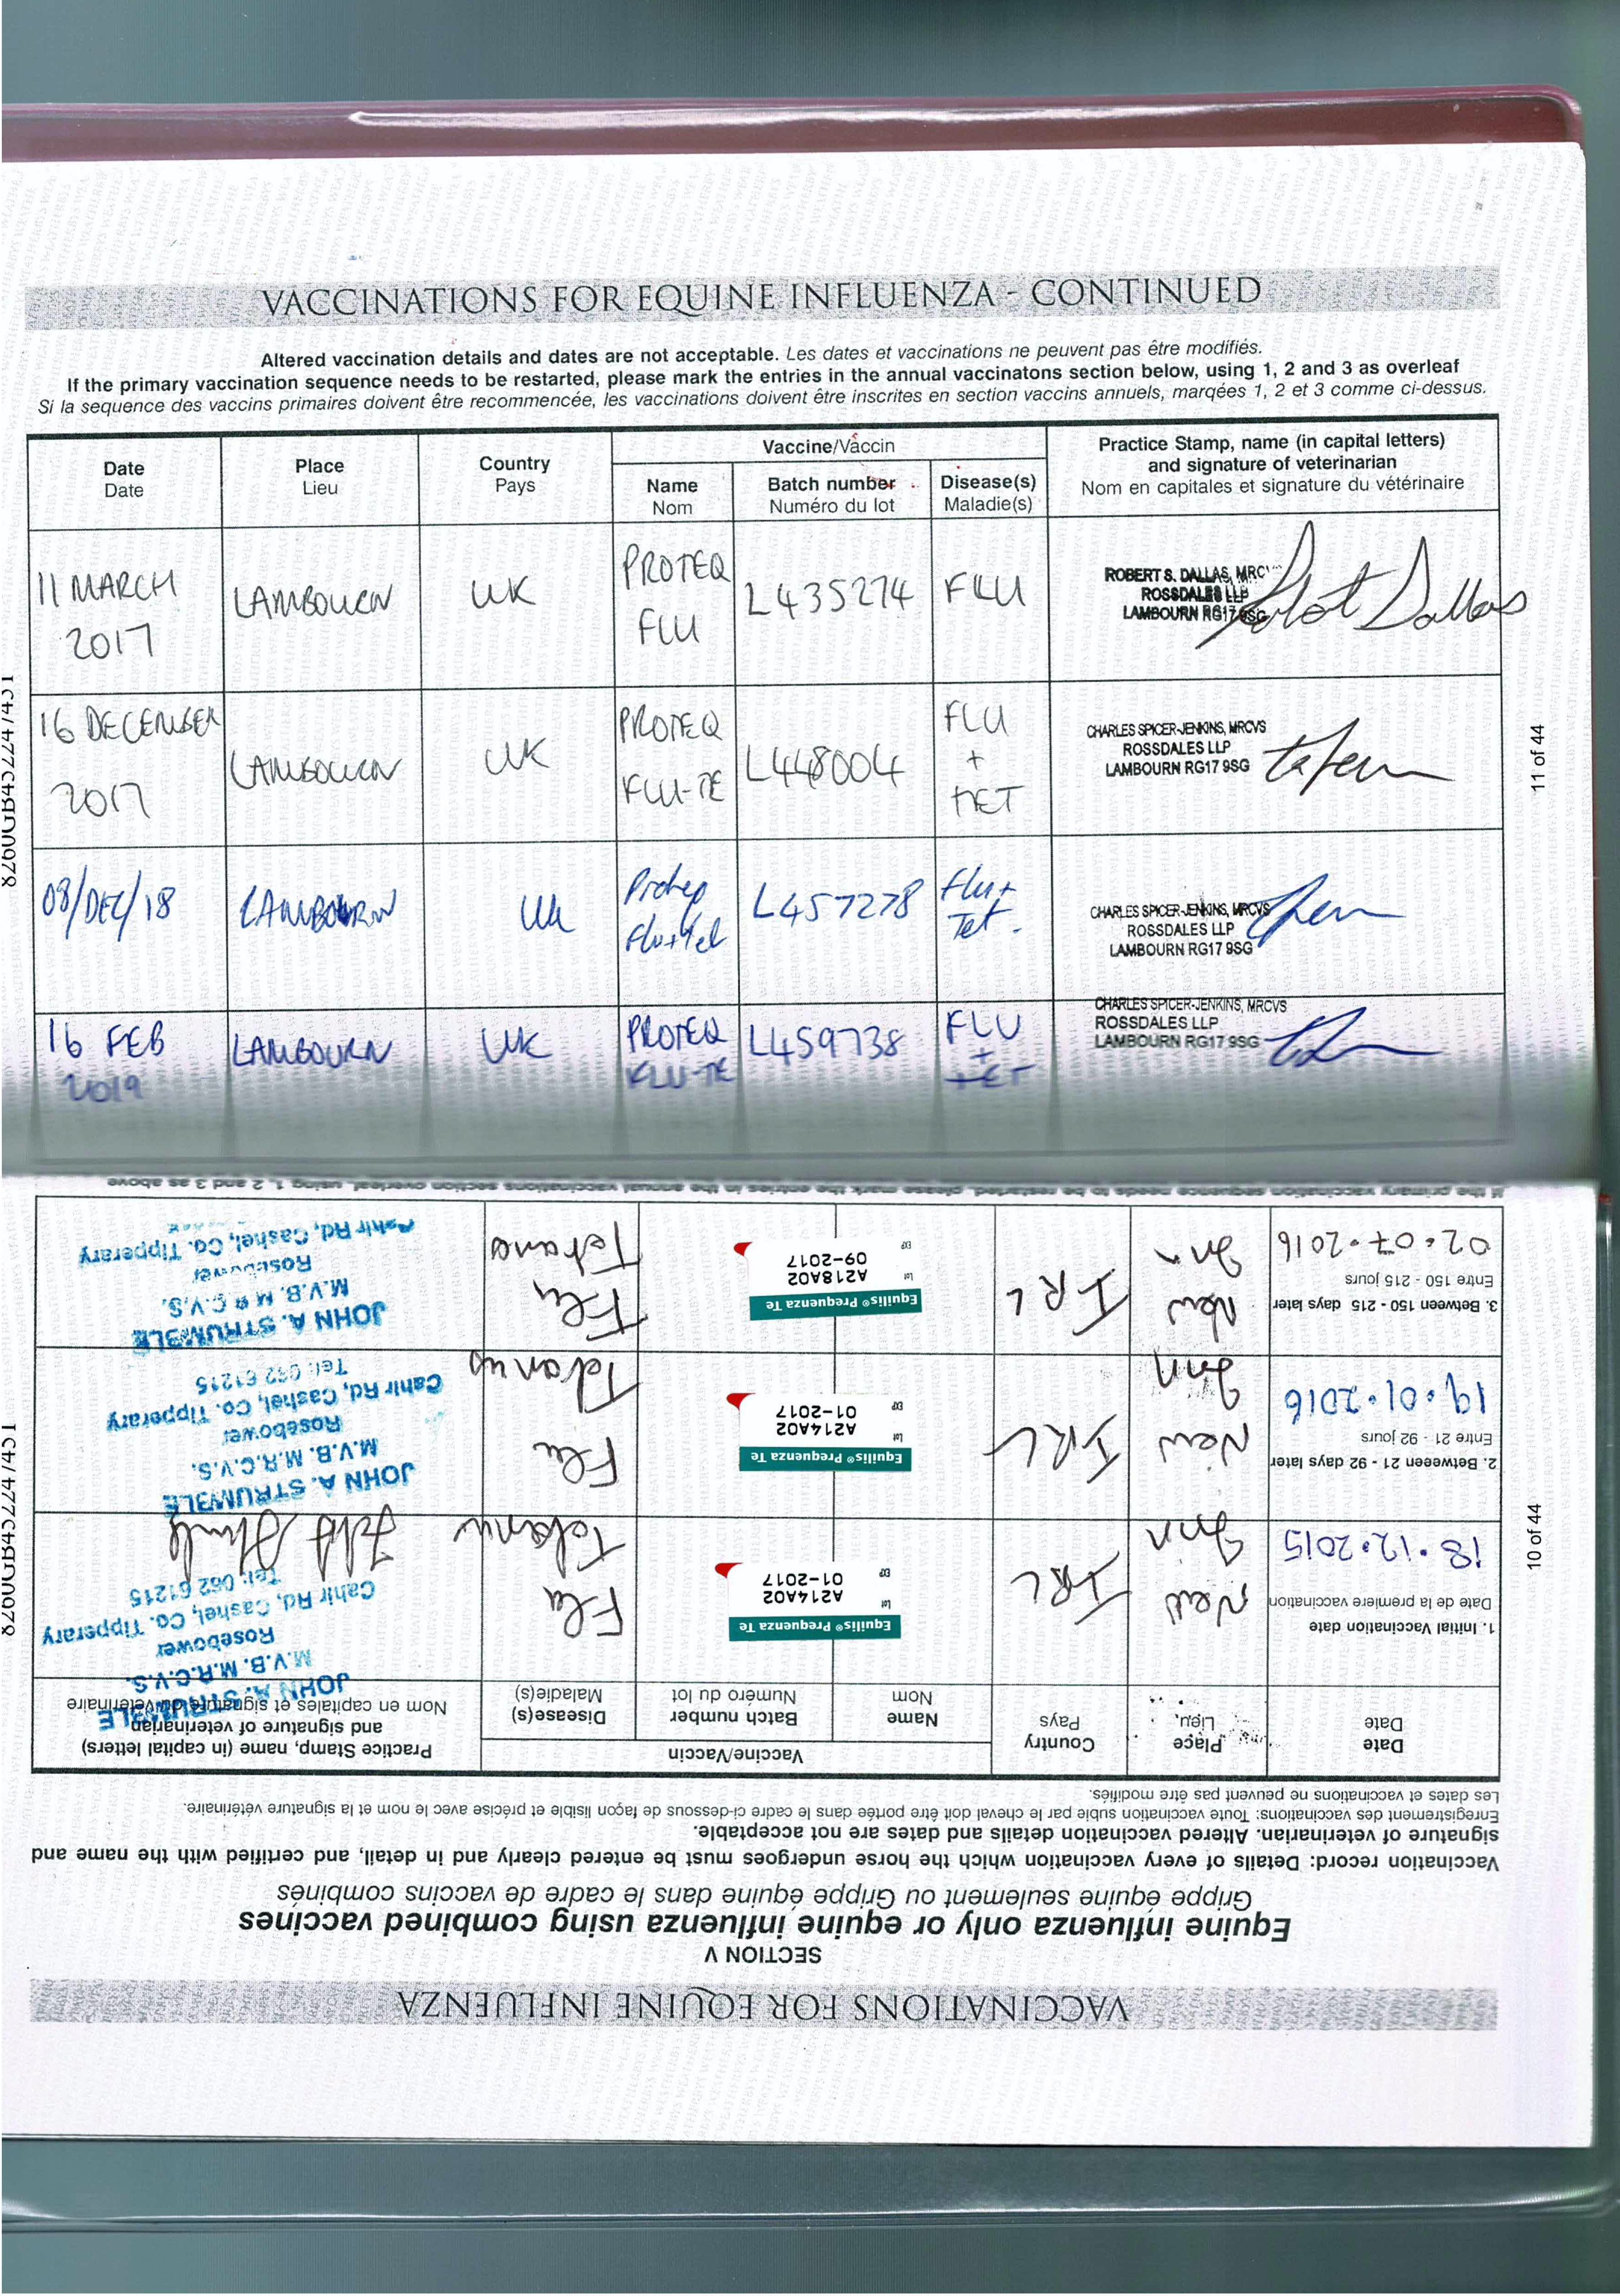 VACCINATIONS FOR EQUINE INFLUENZA - CONTINUED
Altered vaccination details and dates are not acceptable. Les dates et vaccinations ne peuvent pas être modifiés.
If the primary vaccination sequence needs to be restarted, please mark the entries in the annual vaccinatons section below, using 1, 2 and 3 as overleaf
Si la sequence des vaccins primaires doivent être recommencée, les vaccinations doivent être inscrites en section vaccins annuels, marqées 1, 2 et 3 comme ci-dessus.
Date
Date
Place
Lieu
Country
Pays
Vaccine/Vaccin
Name
Nom
Batch number
Numéro du lot
Disease(s)
Maladie(s)
Practice Stamp, name (in capital letters)
and signature of veterinarian
Nom en capitales et signature du vétérinaire
11 MARCH
2017
LAMBOURN
UK
PROTEQ
FLU
L435274
FLU
ROBERT S. DALLAS, MRCV
ROSSDALES LLP
LAMBOURN RG17 9SG
Robert Dallas
16 DECEMBER
2017
LAMBOURN
UK
PROTEQ
FLU-TE
L448004
FLU
+
TET
CHARLES SPICER-JENKINS, MRCVS
ROSSDALES LLP
LAMBOURN RG17 9SG
08/DEC/18
LAMBOURN
UK
Proteq
Flu+Tet
L457278
Flu+
Tet.
CHARLES SPICER-JENKINS, MRCVS
ROSSDALES LLP
LAMBOURN RG17 9SG
16 FEB
2019
LAMBOURN
UK
PROTEQ
FLU-TE
L459738
FLU
+
TET
CHARLES SPICER-JENKINS, MRCVS
ROSSDALES LLP
LAMBOURN RG17 9SG
11 of 44
VACCINATIONS FOR EQUINE INFLUENZA
SECTION V
Equine influenza only or equine influenza using combined vaccines
Grippe équine seulement ou Grippe équine dans le cadre de vaccins combinés
Vaccination record: Details of every vaccination which the horse undergoes must be entered clearly and in detail, and certified with the name and
signature of veterinarian. Altered vaccination details and dates are not acceptable.
Enregistrement des vaccinations: Toute vaccination subie par le cheval doit être portée dans le cadre ci-dessous de façon lisible et précise avec le nom et la signature vétérinaire.
Les dates et vaccinations ne peuvent pas être modifiés.
Date
Date
Place
Lieu
Country
Pays
Vaccine/Vaccin
Name
Nom
Batch number
Numéro du lot
Disease(s)
Maladie(s)
Practice Stamp, name (in capital letters)
and signature of veterinarian
Nom en capitales et signature du vétérinaire
1. Initial Vaccination date
Date de la première vaccination
18.12.2015
New
Inn
IRL
Equilis® Prequenza Te
Lot A214A02
EXP 01-2017
Flu
Tetanus
JOHN A. STRUMBLE
M.V.B. M.R.C.V.S.
Rosebower
Cahir Rd, Cashel, Co. Tipperary
Tel: 062 61215
2. Betweeen 21 - 92 days later
Entre 21 - 92 jours
19.01.2016
New
Inn
IRL
Equilis® Prequenza Te
Lot A214A02
EXP 01-2017
Flu
Tetanus
JOHN A. STRUMBLE
M.V.B. M.R.C.V.S.
Rosebower
Cahir Rd, Cashel, Co. Tipperary
Tel: 062 61215
3. Between 150 - 215 days later
Entre 150 - 215 jours
02.07.2016
New
Inn
IRL
Equilis® Prequenza Te
Lot A218A02
EXP 09-2017
Flu
Tetanus
JOHN A. STRUMBLE
M.V.B. M.R.C.V.S.
Rosebower
Cahir Rd, Cashel, Co. Tipperary
If the primary vaccination sequence needs to be restarted, please mark the entries in the annual vaccinations section overleaf, using 1, 2 and 3 as above
10 of 44